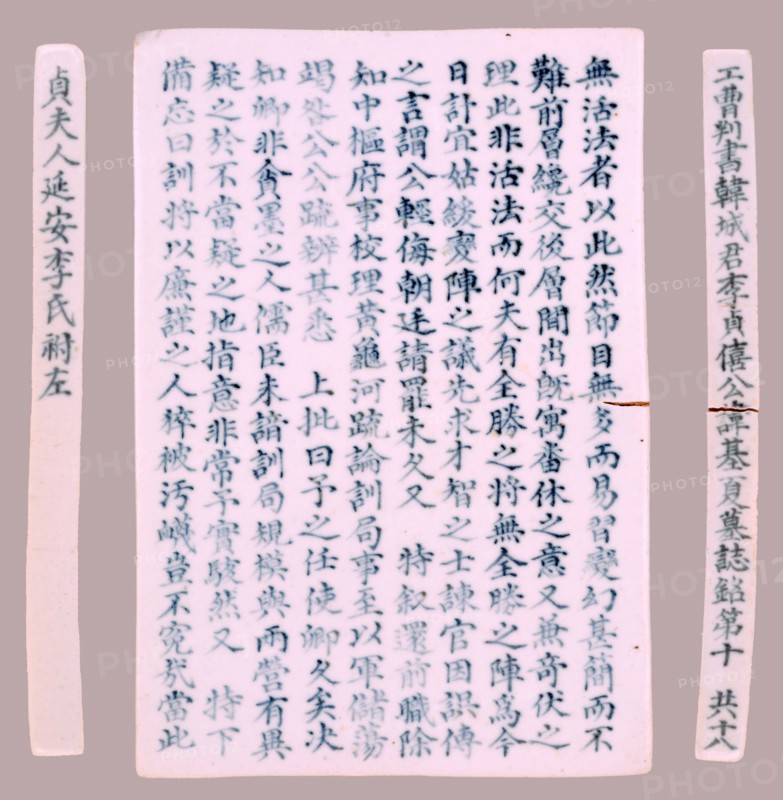 工曹判書韓城君李貞僖公諱基夏墓誌銘第十 共十八
無活法者以此然節目無多而易習變幻甚簡而不
難前層纔交後層間出旣寓畨休之意又兼奇伏之
理此非活法而何夫有全勝之将無全勝之陣爲今
日計宜姑緩變陣之議先求才智之士諫官因誤傳
之言謂公輕侮朝廷請罷未久又 特叙還前職除
知中樞府事校理黃龜河疏論訓局事至以軍儲蕩
竭咎公公疏辨甚悉 上批曰予之任使卿久矣决
知卿非貪墨之人儒臣未諳訓局規模與兩營有異
疑之於不當疑之地指意非常予實駭然又 特下
備忘曰訓将以廉謹之人猝被汚衊豈不寃㢤當此
貞夫人延安李氏祔左
PHOTO12